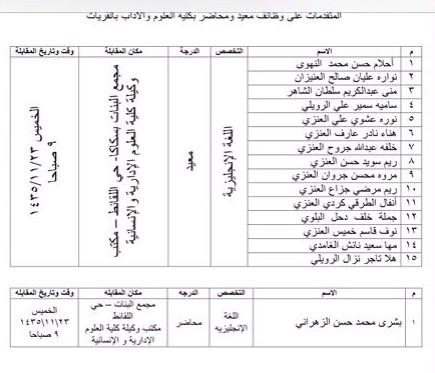 المتقدمات على وظائف معيد ومحاضر بكلية العلوم والآداب بالقريات
م الاسم التخصص الدرجة مكان المقابلة وقت وتاريخ المقابلة
١ أحلام حسن محمد النهوي
٢ نواره عليان صالح العنيزان
٣ منى عبدالكريم سلطان الشاهر
٤ ساميه سمير علي الرويلي
٥ نوره عشوي علي العنزي
٦ هناء نادر عارف العنزي
٧ خلفه عبدالله جروح العنزي
٨ ريم سويد حسن العنزي
٩ مروه محسن جروان العنزي
١٠ ريم مرضي جزاع العنزي
١١ أنفال الطرقي كردي العنزي
١٢ جملة خلف دحل البلوي
١٣ نوف قاسم خميس العنزي
١٤ مها سعيد نانش الغامدي
١٥ هلا تاجر نزال الرويلي
اللغة الإنجليزية
معيد
مجمع البنات بسكاكا- حي اللقائط – مكتب
وكيلة كلية العلوم الإدارية والإنسانية
الخميس ١٤٣٥/١١/٢٣
٩ صباحا
م الاسم التخصص الدرجه مكان المقابله وقت وتاريخ المقابلة
١ بشرى محمد حسن الزهراني
اللغة
الانجليزيه
محاضر
مجمع البنات – حي
اللقائط
مكتب وكيلة كلية العلوم
الإدارية و الإنسانية
الخميس
١٤٣٥\١١\٢٣
٩ صباحا